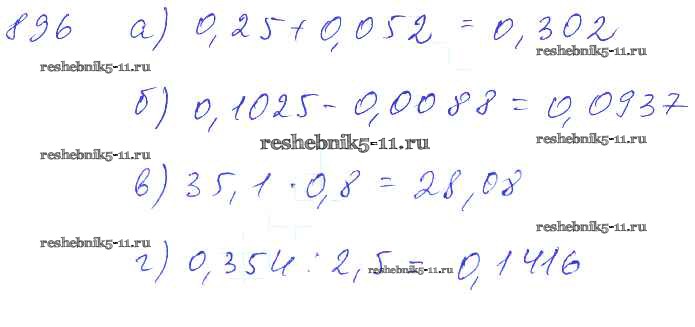 896 а) 0,25 + 0,052 = 0,302
reshebnik5-11.ru reshebnik5-11.ru
б) 0,1025 - 0,0088 = 0,0937
reshebnik5-11.ru reshebnik5-11.ru reshebnik5-11.ru
в) 35,1 · 0,8 = 28,08
reshebnik5-11.ru reshebnik5-11.ru
г) 0,354 : 2,5 = 0,1416
reshebnik5-11.ru